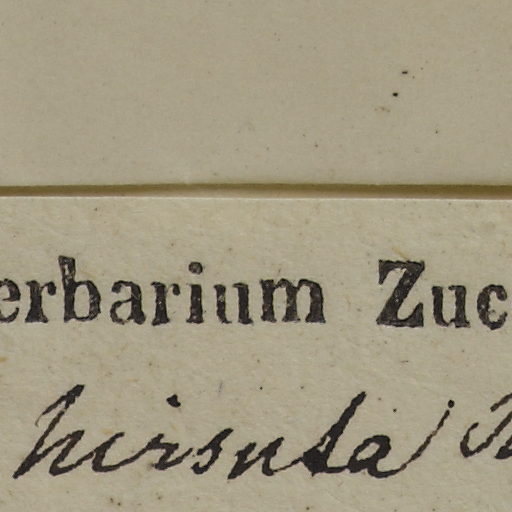 erbarium Zuc
hirsuta